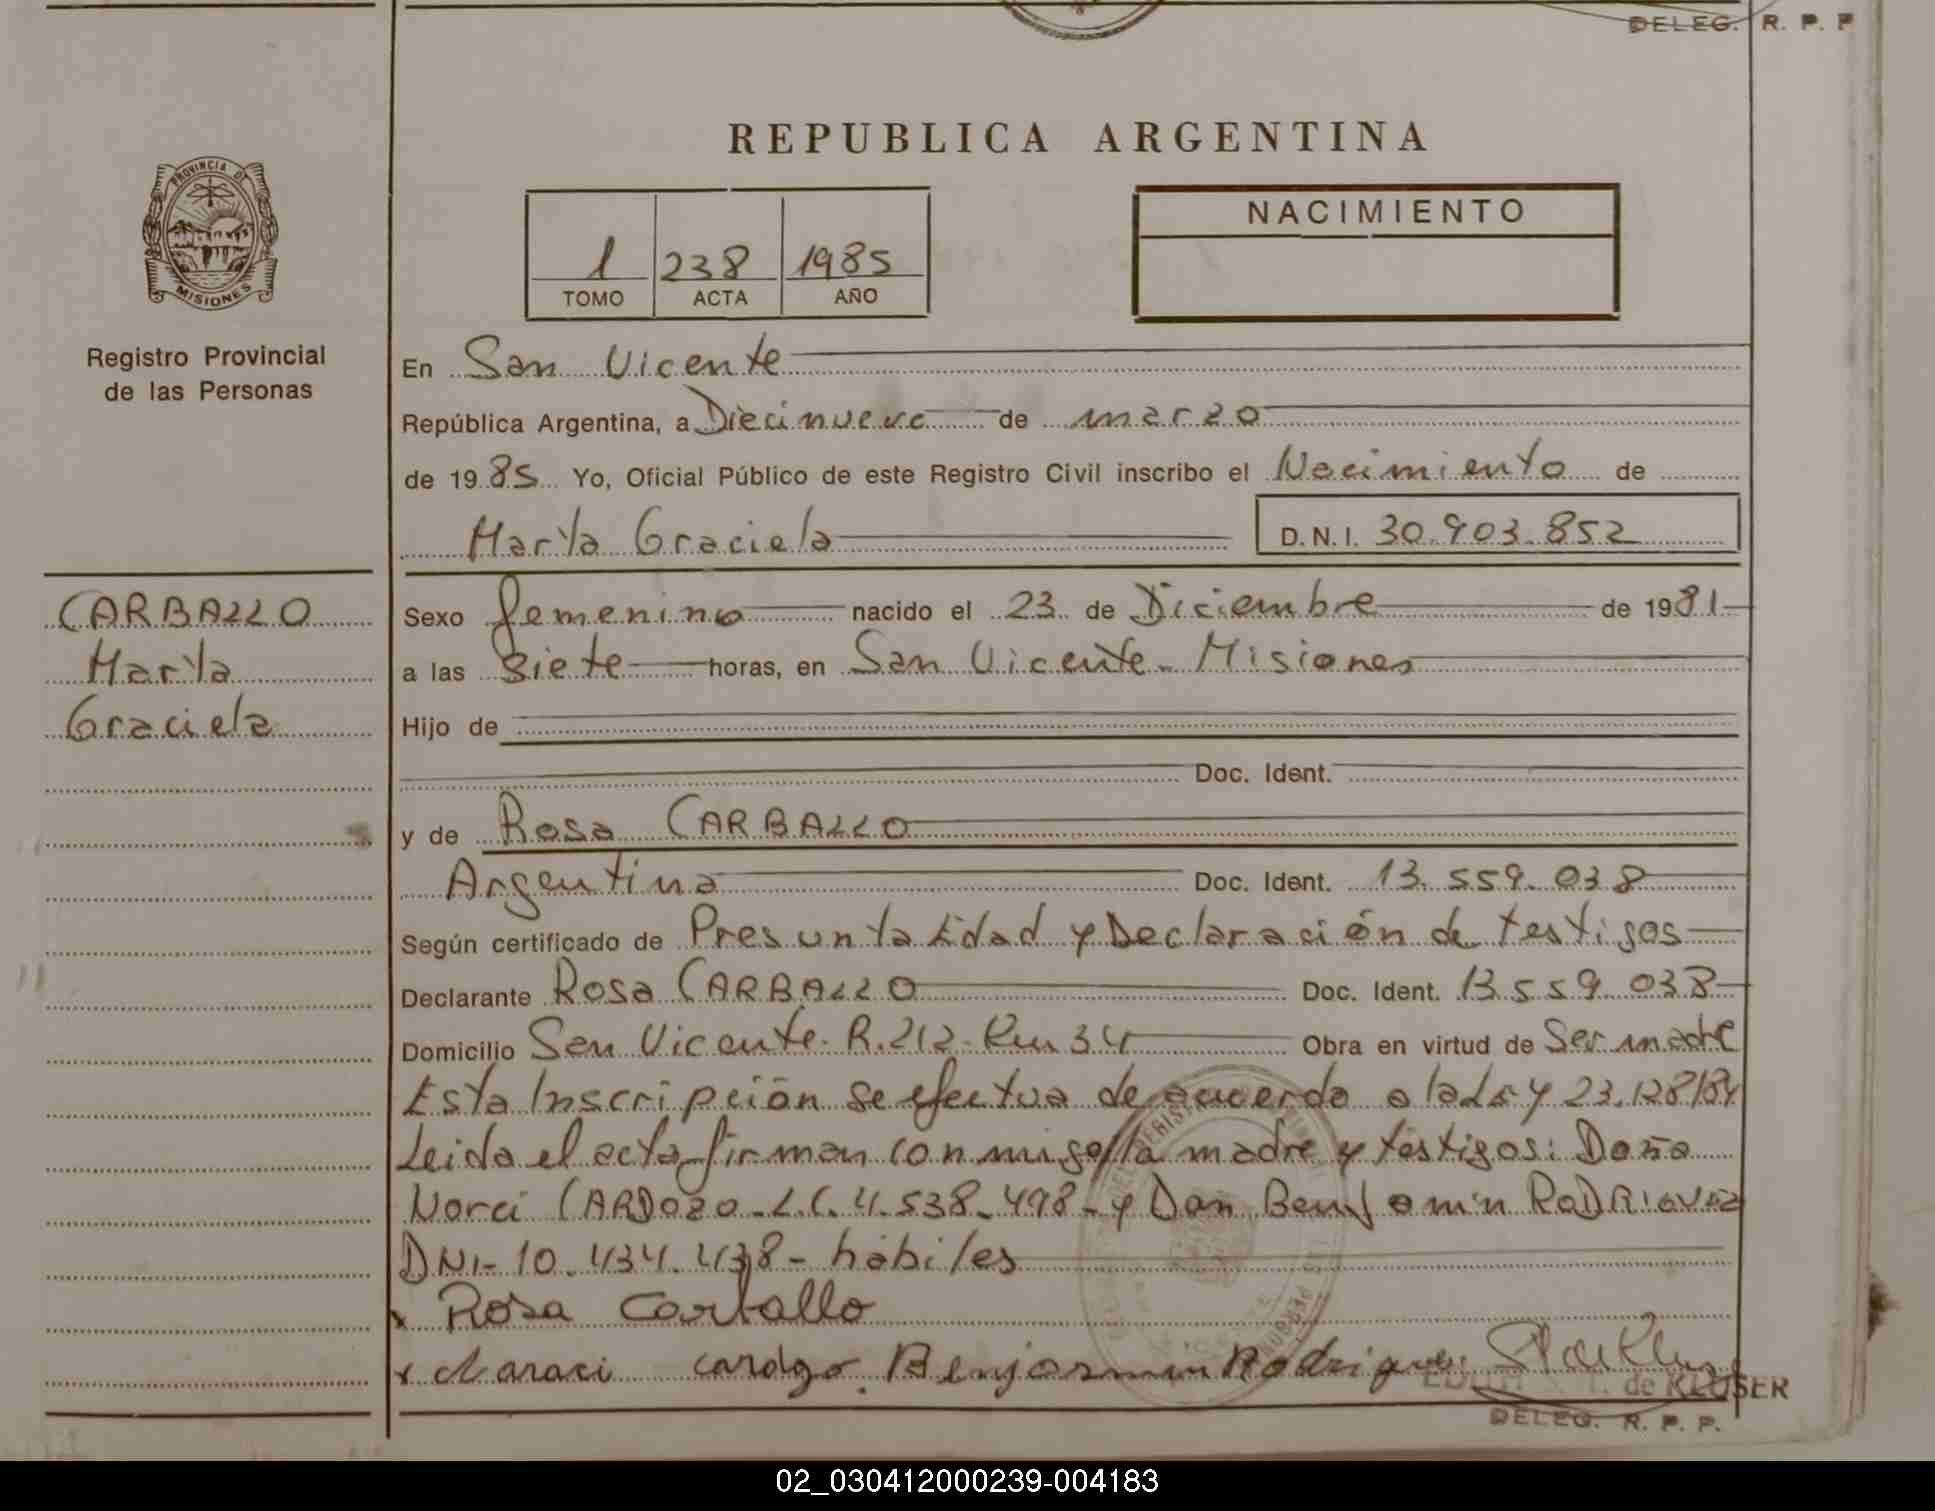 DELEG. R. P. P
REPUBLICA ARGENTINA
PROVINCIA DE
MISIONES
Registro Provincial
de las Personas
1 238 1985
TOMO ACTA AÑO
NACIMIENTO
En San Vicente
República Argentina, a Diecinueve de marzo
de 1985 Yo, Oficial Público de este Registro Civil inscribo el Nacimiento de
Marta Graciela D.N.I. 30.903.852
CARBALLO
Marta
Graciela
Sexo femenino nacido el 23 de Diciembre de 1981
a las siete horas, en San Vicente - Misiones
Hijo de
Doc. Ident.
y de Rosa CARBALLO
Argentina Doc. Ident. 13.559.038
Según certificado de Presunta Edad y Declaración de testigos
Declarante Rosa CARBALLO Doc. Ident. 13.559.038
Domicilio San Vicente - R.212 - Km 34 Obra en virtud de Ser madre
Esta Inscripción se efectua de acuerdo a la Ley 23.128/84
Leida el acta firman conmigo la madre y testigos: Doña
CARDOZO - L.C. 4.538.498 - y Don Benjamin RODRIGUEZ
DNI - 10.434.438 - hábiles
x Rosa Carballo
x cardozo. Benjarmin Rodriguez
T. de KLUSER
DELEG. R. P. P.
02_030412000239-004183